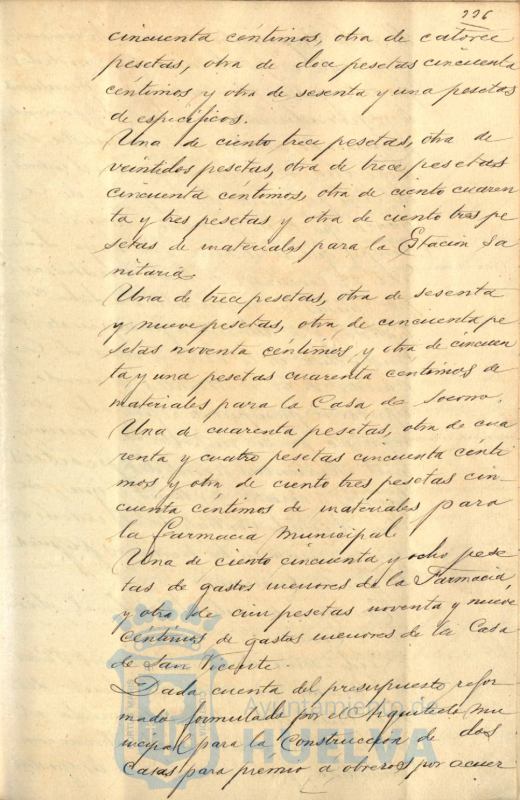 226
cincuenta céntimos, otra de catorce
pesetas, otra de doce pesetas cincuenta
céntimos y otra de sesenta y una pesetas
de específicos.
Una de ciento trece pesetas, otra de
veintidos pesetas, otra de trece pesetas
cincuenta céntimos, otra de ciento cuaren
ta y tres pesetas y otra de ciento tres pe
setas de materiales para la Estación Sa
nitaria.
Una de trece pesetas, otra de sesenta
y nueve pesetas, otra de cincuenta pe
setas noventa céntimos y otra de cincuen
ta y una pesetas cuarenta céntimos de
materiales para la Casa de Socorro.
Una de cuarenta pesetas, otra de cua
renta y cuatro pesetas cincuenta cénti
mos y otra de ciento tres pesetas cin
cuenta céntimos de materiales para
la Farmacia Municipal.
Una de ciento cincuenta y ocho pese
tas de gastos menores de la Farmacia,
y otra de cien pesetas noventa y nueve
céntimos de gastos menores de la Casa
de San Vicente.
Dada cuenta del presupuesto refor
mado formulado por el Arquitecto Mu
nicipal para la construcción de dos
Casas para premio a obreros por acuer
Ayuntamiento de
HUELVA